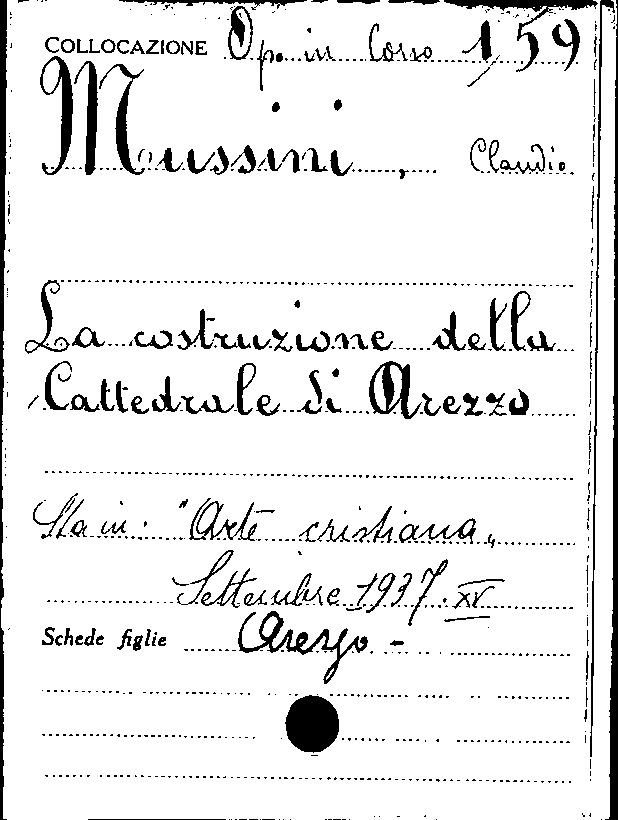 COLLOCAZIONE Op. in Corso 1,59
Mussini, Claudio
La costruzione della
Cattedrale di Arezzo
Sta in: "Arte cristiana"
Settembre 1937. XV
Schede figlie Arezzo -